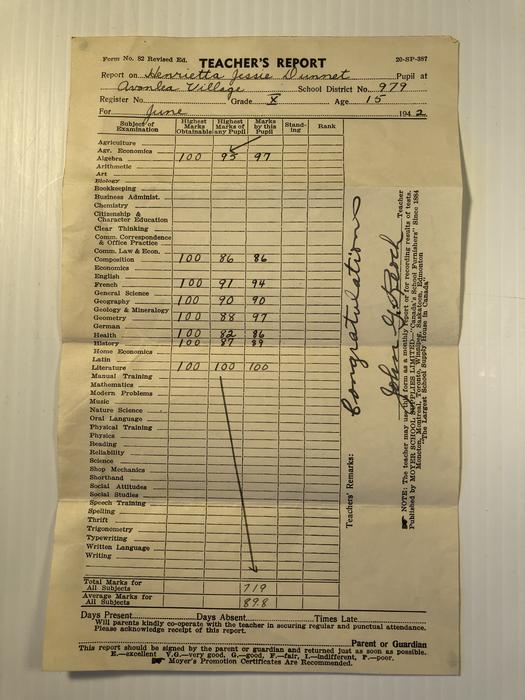 Form No. 82 Revised Ed.
TEACHER'S REPORT
20-SP-387
Report on Henrietta Jessie Dunnet Pupil at
Avonlea Village School District No. 979
Register No. Grade X Age 15
For June 1942
Subject of Examination Highest Marks Obtainable Highest Marks of any Pupil Marks by this Pupil Stand-ing Rank
Agriculture
Agr. Economics
Algebra 100 95 97
Arithmetic
Art
Biology
Bookkeeping
Business Administ.
Chemistry
Citizenship &
Character Education
Clear Thinking
Comm. Correspondence
& Office Practice
Comm. Law & Econ.
Composition 100 86 86
Economics
English
French 100 91 94
General Science
Geography 100 90 90
Geology & Mineralogy
Geometry 100 88 97
German
Health 100 82 86
History 100 87 89
Home Economics
Latin
Literature 100 100 100
Manual Training
Mathematics
Modern Problems
Music
Nature Science
Oral Language
Physical Training
Physics
Reading
Reliability
Science
Shop Mechanics
Shorthand
Social Attitudes
Social Studies
Speech Training
Spelling
Thrift
Trigonometry
Typewriting
Written Language
Writing
Total Marks for
All Subjects 719
Average Marks for
All Subjects 898
Teachers' Remarks: Congratulations
John Teacher
NOTE: The teacher may use this form as a monthly report or for recording results of tests.
Published by MOYER SCHOOL SUPPLIES LIMITED—"Canada's School Furnishers" Since 1884
Moncton, Montreal, Toronto, Winnipeg, Saskatoon, Edmonton
"The Largest School Supply House in Canada"
Days Present Days Absent Times Late
Will parents kindly co-operate with the teacher in securing regular and punctual attendance.
Please acknowledge receipt of this report.
Parent or Guardian
This report should be signed by the parent or guardian and returned just as soon as possible.
E.—excellent V.G.—very good, G.—good, F.—fair, I.—indifferent, P.—poor.
Moyer's Promotion Certificates Are Recommended.